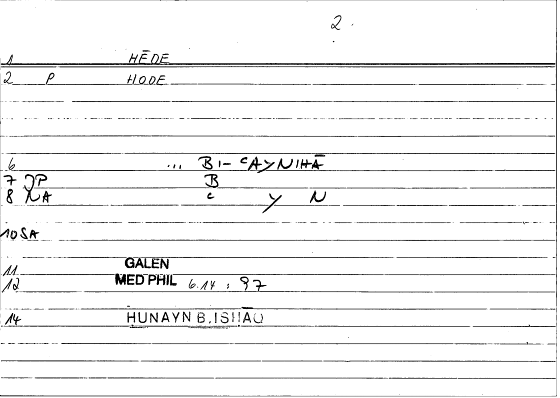 2.
1 HĒDE
2 P HODE
6 ... BI-cAyNIHĀ
7 JP B
8 NA c y N
10 SA
11 GALEN
12 MED PHIL 6.14 : 97
14 HUNAYN B.ISḤĀQ